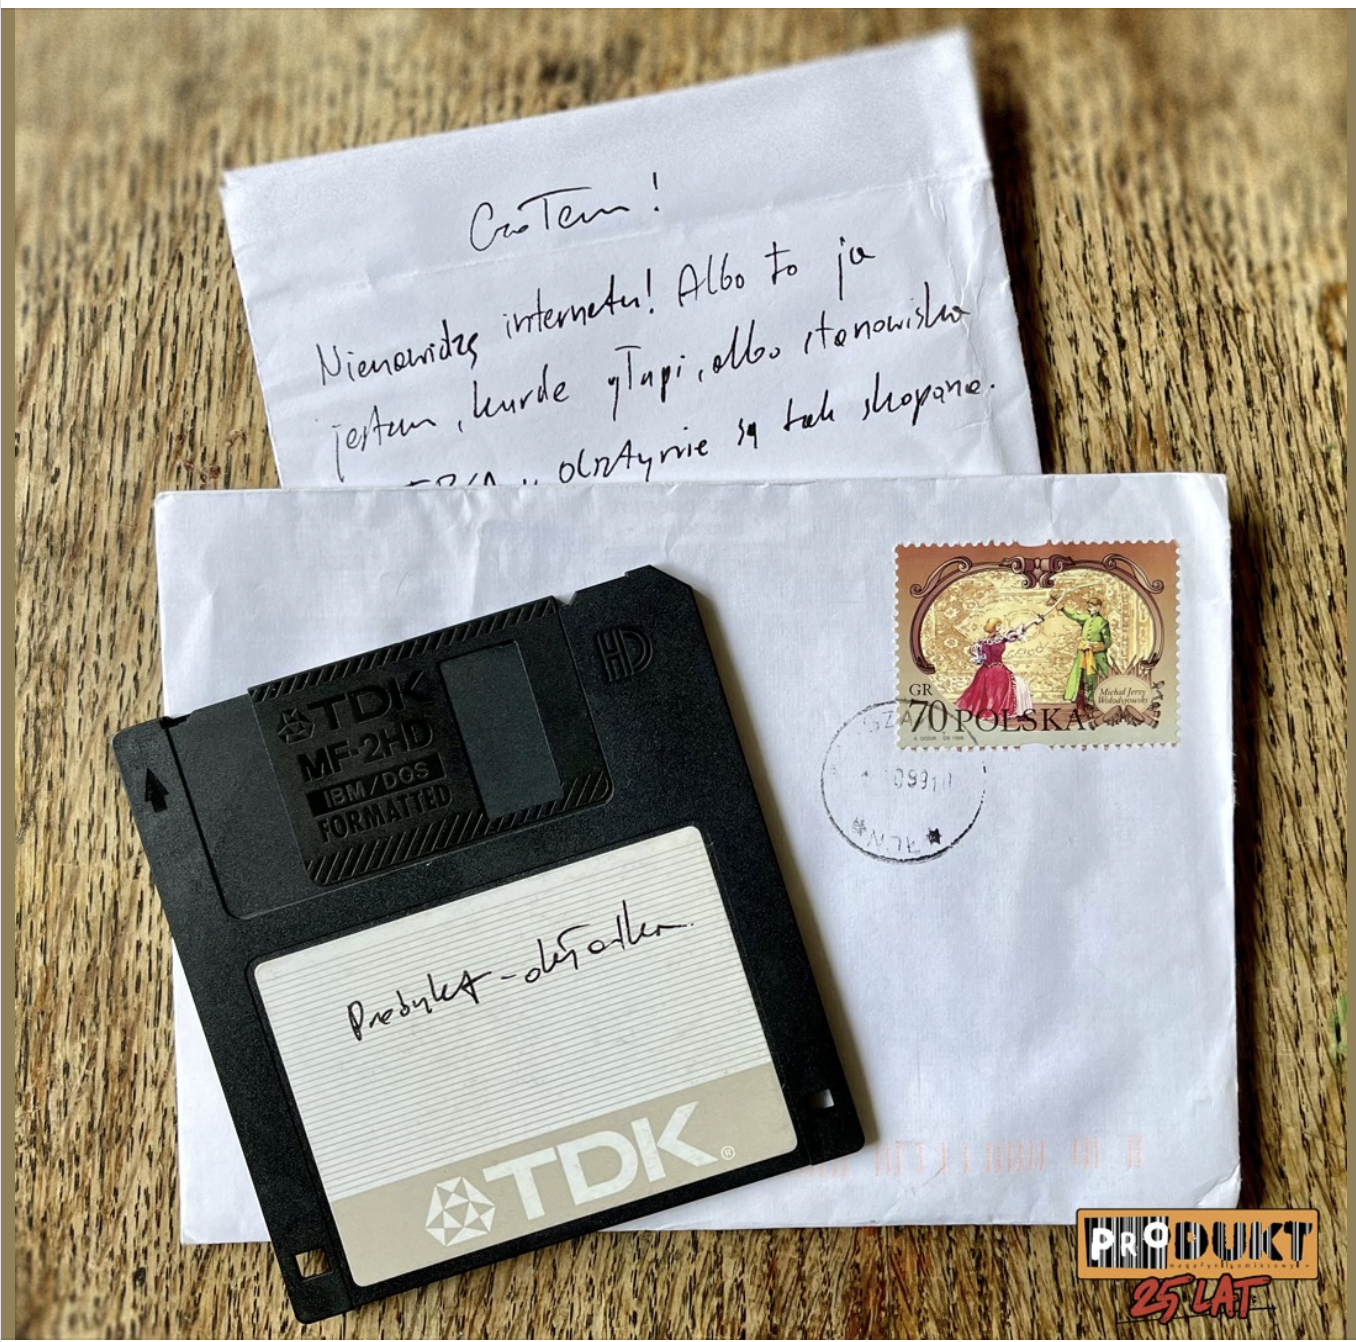 CzoTem!
Nienawidzę internetu! Albo to ja
jestem, kurde głupi, albo stanowiska
w olsztynie są tak skopane.
HD
TDK
MF-2HD
IBM/DOS
FORMATTED
Produkt - okładka.
TDK®
GR
70 POLSKA
Michał Jerzy
Wołodyjowski
PRODUKT
magazyn komiksowy
25 LAT